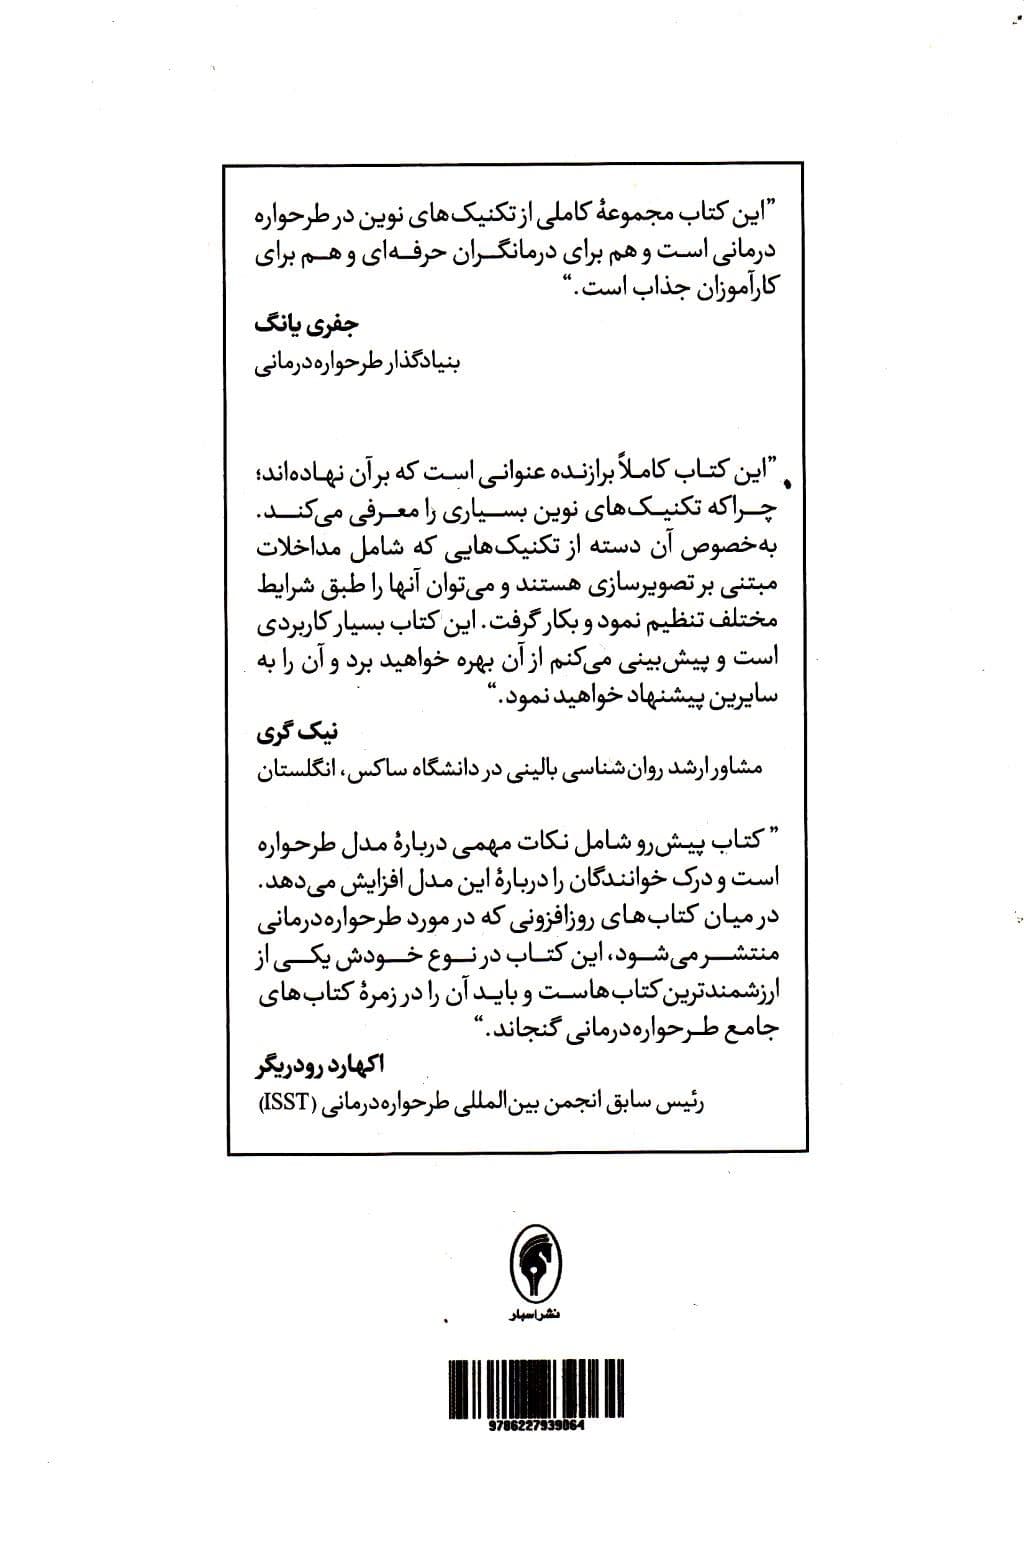 ”این کتاب مجموعهٔ کاملی از تکنیک‌های نوین در طرحواره
درمانی است و هم برای درمانگران حرفه‌ای و هم برای
کارآموزان جذاب است.“
جفری یانگ
بنیادگذار طرحواره‌درمانی
”این کتاب کاملاً برازنده عنوانی است که بر آن نهاده‌اند؛
چراکه تکنیک‌های نوین بسیاری را معرفی می‌کند.
به‌خصوص آن دسته از تکنیک‌هایی که شامل مداخلات
مبتنی بر تصویرسازی هستند و می‌توان آنها را طبق شرایط
مختلف تنظیم نمود و بکار گرفت. این کتاب بسیار کاربردی
است و پیش‌بینی می‌کنم از آن بهره خواهید برد و آن را به
سایرین پیشنهاد خواهید نمود.“
نیک گری
مشاور ارشد روان‌شناسی بالینی در دانشگاه ساکس، انگلستان
” کتاب پیش‌رو شامل نکات مهمی دربارهٔ مدل طرحواره
است و درک خوانندگان را دربارهٔ این مدل افزایش می‌دهد.
در میان کتاب‌های روزافزونی که در مورد طرحواره‌درمانی
منتشر می‌شود، این کتاب در نوع خودش یکی از
ارزشمندترین کتاب‌هاست و باید آن را در زمرهٔ کتاب‌های
جامع طرحواره‌درمانی گنجاند.“
اکهارد رودریگر
رئیس سابق انجمن بین‌المللی طرحواره‌درمانی (ISST)
نشر اسبار
9786227939064